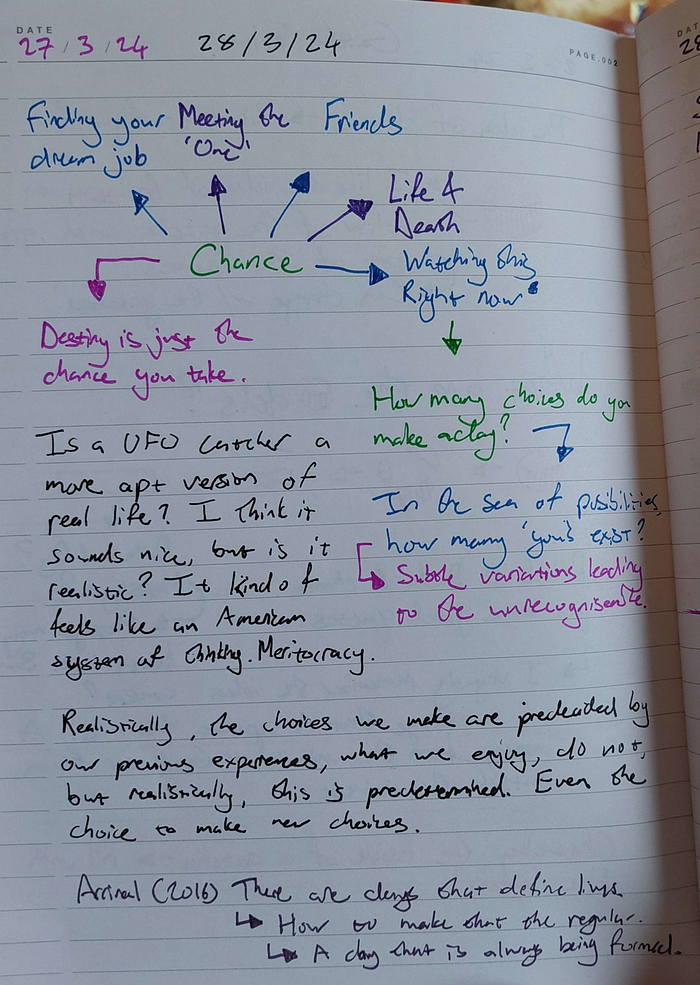 DATE
27/3/24 28/3/24
PAGE.002
Finding your
dream job
Meeting the
'One'
Friends
Life &
Death
Chance
Watching this
Right now
Destiny is just the
chance you take.
How many choices do you
make a day?
In the sea of possibilities,
how many 'you's exist?
Subtle variations leading
to the unrecogniseable.
Is a UFO catcher a
more apt version of
real life? I think it
sounds nice, but is it
realistic? It kind of
feels like an American
system of thinking. Meritocracy.
Realistically, the choices we make are predecided by
our previous experiences, what we enjoy, do not,
but realistically, this is predetermined. Even the
choice to make new choices.
Arrival (2016) There are days that define lives.
How to make that the regular.
A day that is always being formed.
DAT
28